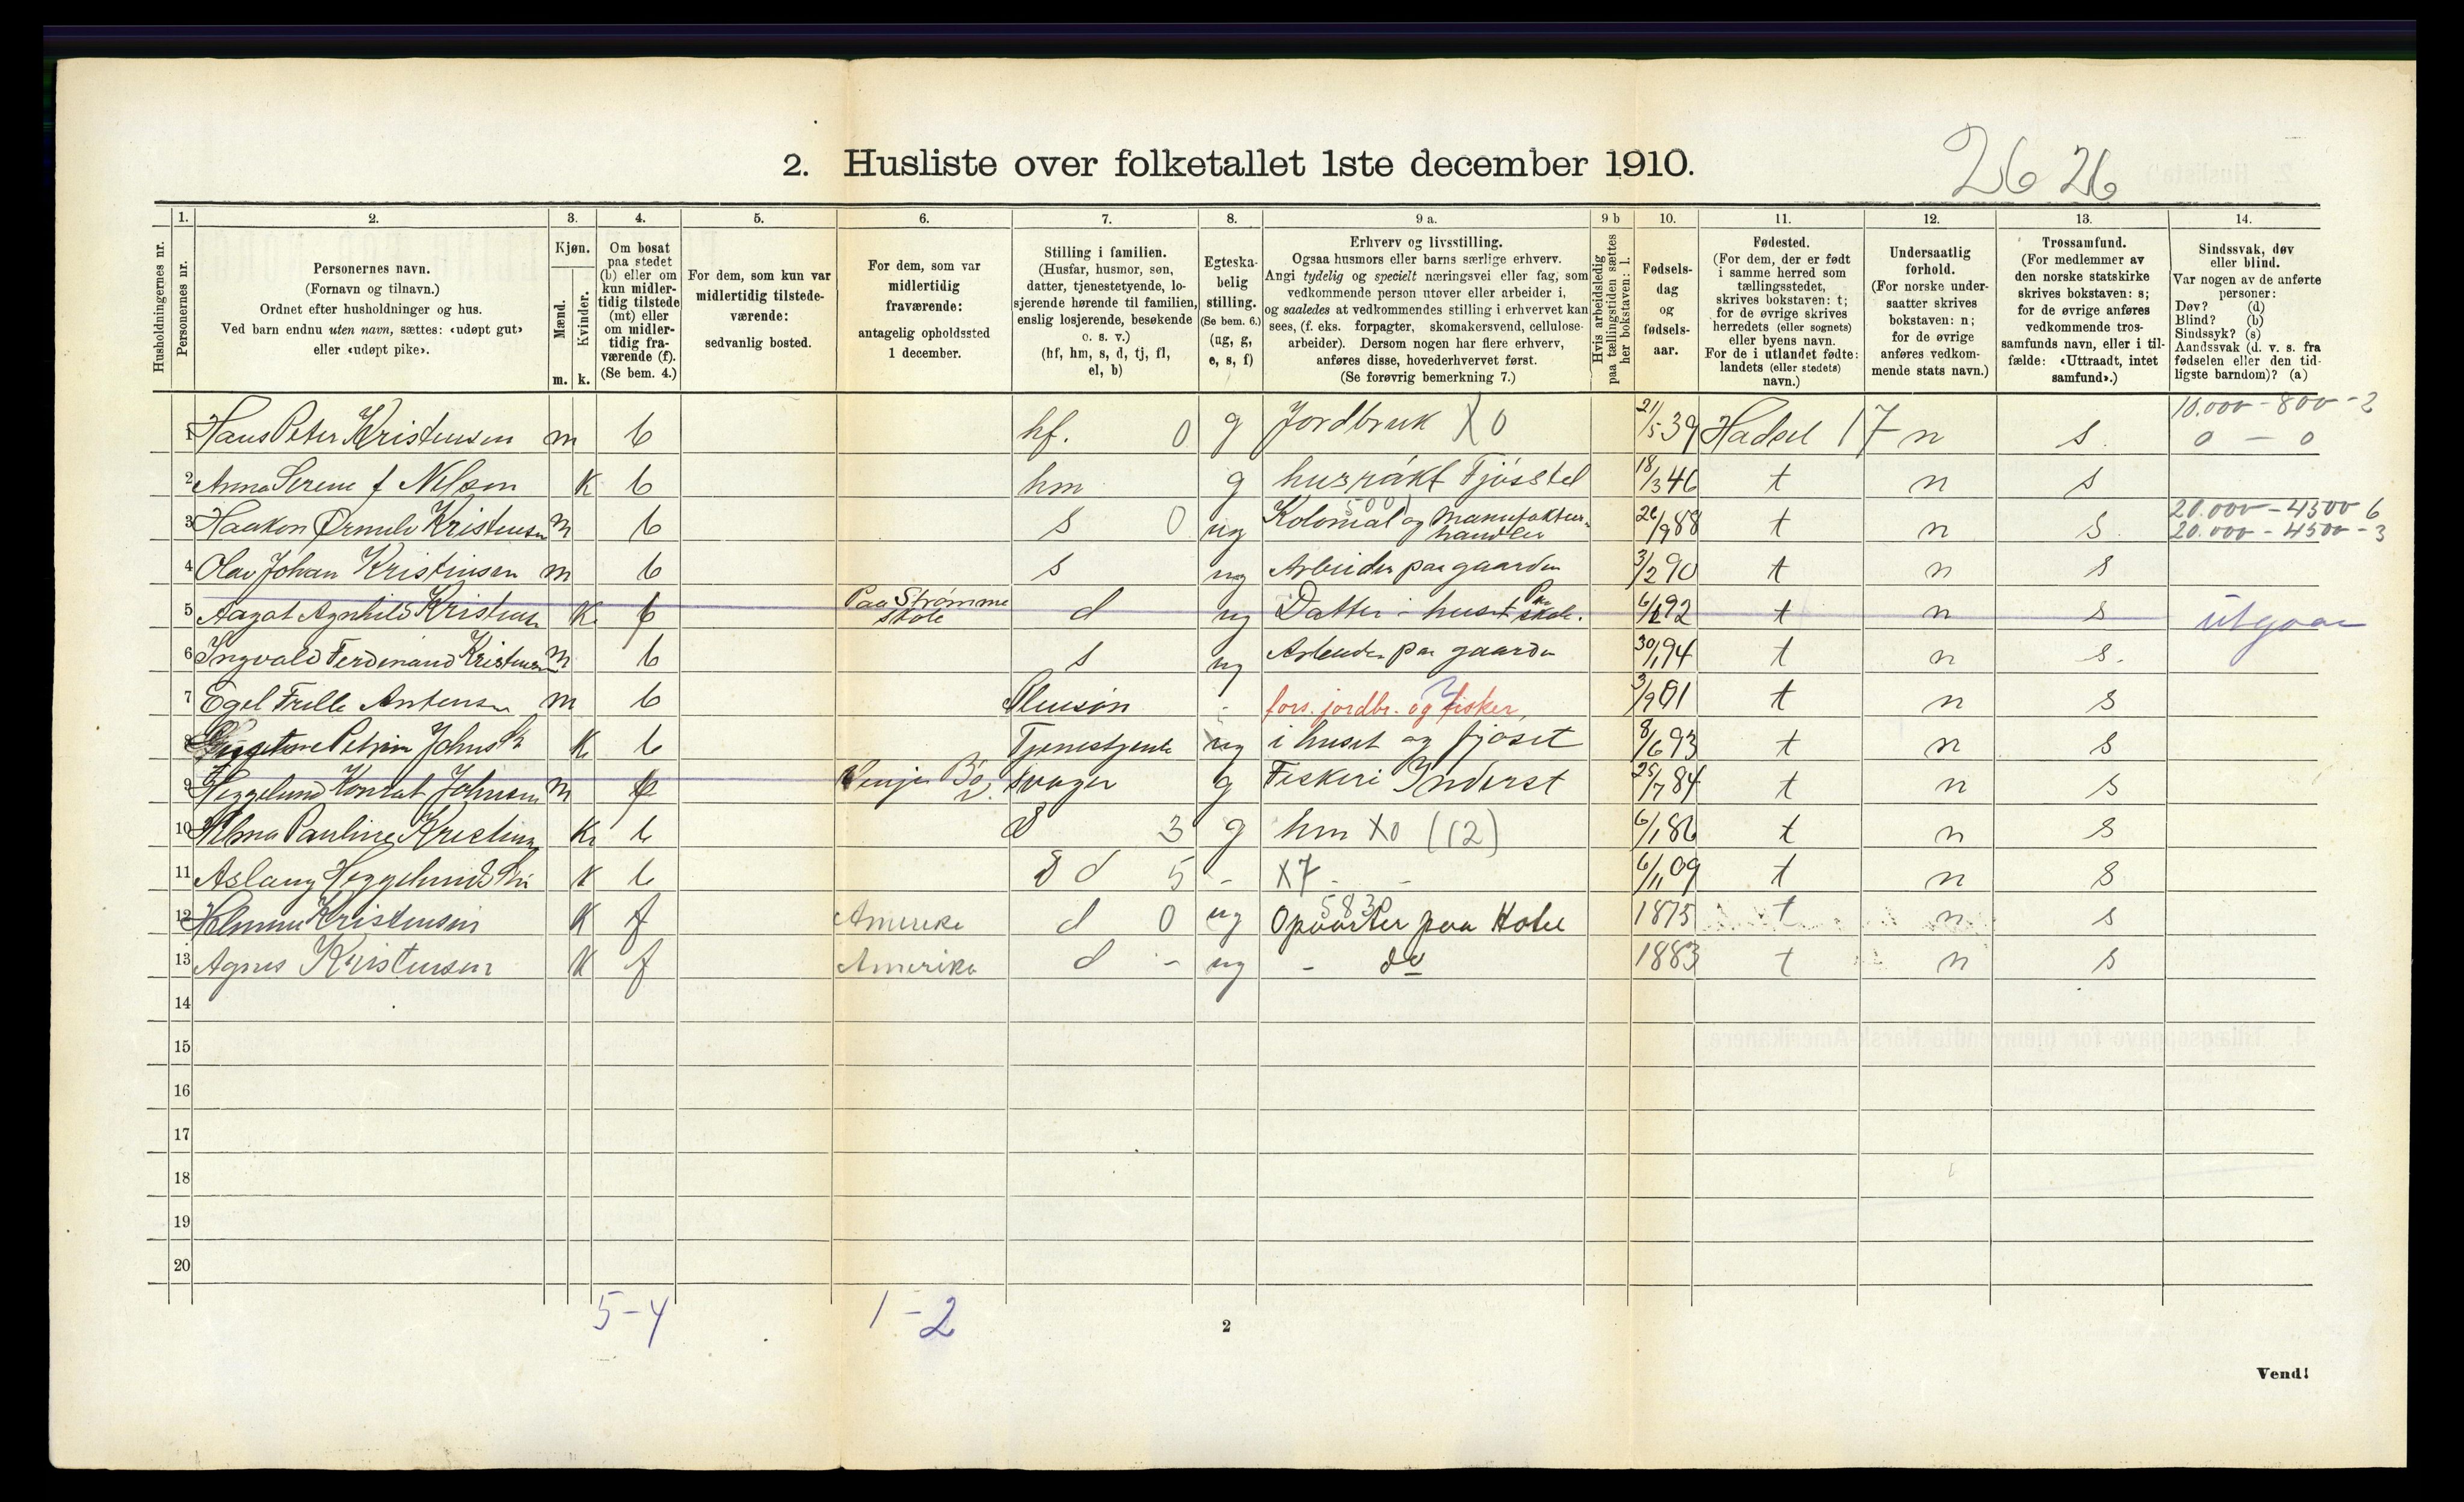 2. Husliste over folketallet 1ste december 1910.
26 26
1. 2. 3. 4. 5. 6. 7. 8. 9 a. 9 b 10. 11. 12. 13. 14.
Husholdningernes nr.
Personernes nr.
Personernes navn.
(Fornavn og tilnavn.)
Ordnet efter husholdninger og hus.
Ved barn endnu uten navn, sættes: «udøpt gut»
eller «udøpt pike».
Kjøn.
Mænd.
Kvinder.
m. k.
Om bosat
paa stedet
(b) eller om
kun midler-
tidig tilstede
(mt) eller
om midler-
tidig fra-
værende (f).
(Se bem. 4.)
For dem, som kun var
midlertidig tilstede-
værende:
sedvanlig bosted.
For dem, som var
midlertidig
fraværende:
antagelig opholdssted
1 december.
Stilling i familien.
(Husfar, husmor, søn,
datter, tjenestetyende, lo-
sjerende hørende til familien,
enslig losjerende, besøkende
o. s. v.)
(hf, hm, s, d, tj, fl,
el, b)
Egteska-
belig
stilling.
(Se bem. 6.)
(ug, g,
e, s, f)
Erhverv og livsstilling.
Ogsaa husmors eller barns særlige erhverv.
Angi tydelig og specielt næringsvei eller fag, som
vedkommende person utøver eller arbeider i,
og saaledes at vedkommendes stilling i erhvervet kan
sees, (f. eks. forpagter, skomakersvend, cellulose-
arbeider). Dersom nogen har flere erhverv,
anføres disse, hovederhvervet først.
(Se forøvrig bemerkning 7.)
Hvis arbeidsledig
paa tællingstiden sættes
her bokstaven: l.
Fødsels-
dag
og
fødsels-
aar.
Fødested.
(For dem, der er født
i samme herred som
tællingsstedet,
skrives bokstaven: t;
for de øvrige skrives
herredets (eller sognets)
eller byens navn.
For de i utlandet fødte:
landets (eller stedets)
navn.)
Undersaatlig
forhold.
(For norske under-
saatter skrives
bokstaven: n;
for de øvrige
anføres vedkom-
mende stats navn.)
Trossamfund.
(For medlemmer av
den norske statskirke
skrives bokstaven: s;
for de øvrige anføres
vedkommende tros-
samfunds navn, eller i til-
fælde: «Uttraadt, intet
samfund».)
Sindssvak, døv
eller blind.
Var nogen av de anførte
personer:
Døv? (d)
Blind? (b)
Sindssyk? (s)
Aandssvak (d. v. s. fra
fødselen eller den tid-
ligste barndom)? (a)
10.000 - 800 - 2
1 Hans Peter Kristensen m b hf. 0 g Jordbruk X0 21/5 39 Hadsel 17 n s. 0 - 0
2 Anna Serene f Nilsen k b hm g husrøkt Fjøsstel 18/3 46 t n s
500 20.000 - 4500 6
3 Haakon Ørnulv Kristensen m b s 0 ug Kolonial og Manufaktur- handler 26/9 88 t n s. 20.000 - 4500 - 3
4 Olav Johan Kristensen m b s ug Arbeider paa gaarden 3/2 90 t n s
5 Aagot Agnhild Kristens k Paa Strømme skole d ug Datter i huset skole. 92 t n s utgaar
6 Ingvald Ferdinand Kristensen m b s ug Arbeider paa gaarden 30/1 94 t n s.
7 Egel Antensen m b - fors. jordbr. og fisker 3/9 01 t n s
8 Petrine Johns k b Tjenestjente ug i huset og fjøset 8/6 93 t n s
9 Heggelund Konrat Johnsen m Bø svoger g Fiskeri Inderst 25/7 84 t n s
10 Pauline k b 3 g hm X0 (12) 6/1 86 t n s
11 Aslaug Heggelund k b d 5 - X7 - - 6/11 09 t n s
5830
12 Kristensen k f Amerika d 0 ug Opvarter paa Hotel 1875 t n s
13 Agnes Kristensen k f Amerika d - ug - do 1883 t n s
14
15
16
17
18
19
20
5 - 4 1 - 2
2
Vend!